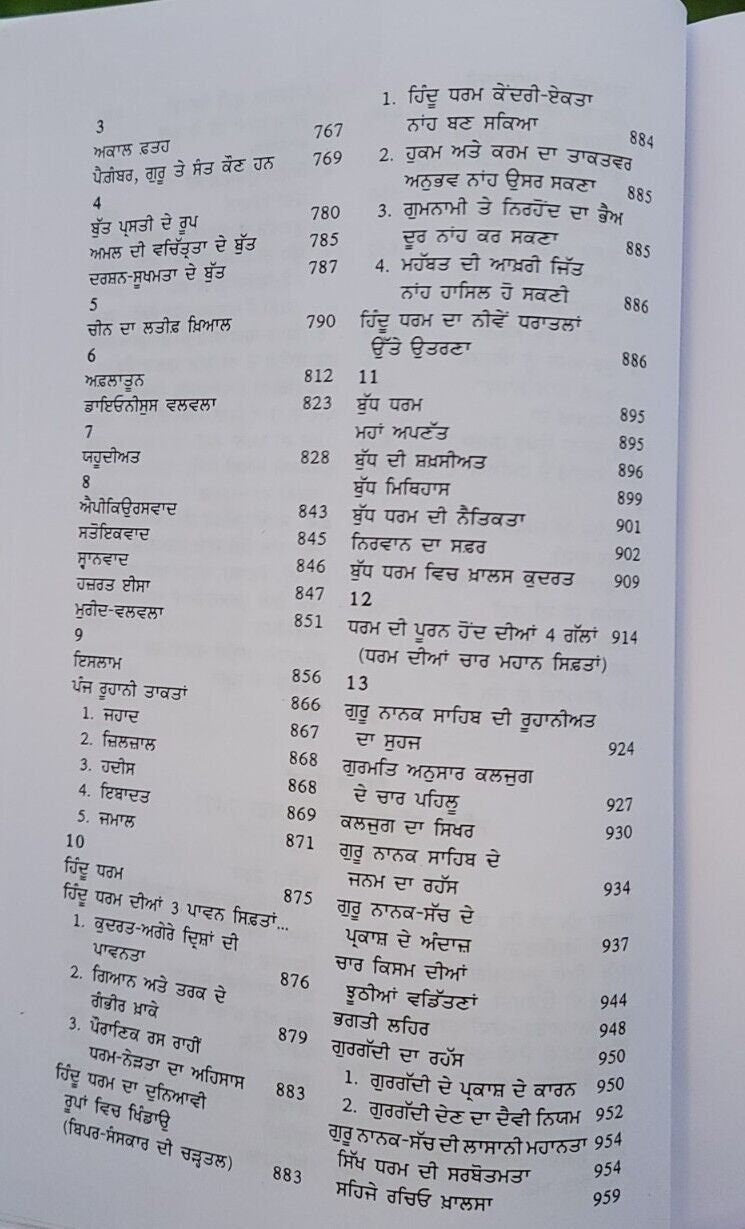 3
ਅਕਾਲ ਫ਼ਤਹ 767
ਪੈਗੰਬਰ, ਗੁਰੂ ਤੇ ਸੰਤ ਕੌਣ ਹਨ 769
4
ਬੁੱਤ ਪ੍ਰਸਤੀ ਦੇ ਰੂਪ 780
ਅਮਲ ਦੀ ਵਚਿੱਤ੍ਰਤਾ ਦੇ ਬੁੱਤ 785
ਦਰਸ਼ਨ-ਸੂਖਮਤਾ ਦੇ ਬੁੱਤ 787
5
ਚੀਨ ਦਾ ਲਤੀਫ਼ ਖ਼ਿਆਲ 790
6
ਅਫ਼ਲਾਤੂਨ 812
ਡਾਇਓਨੀਸੁਸ ਵਲਵਲਾ 823
7
ਯਹੂਦੀਅਤ 828
8
ਐਪੀਕਿਉਰਸਵਾਦ 843
ਸਤੋਇਕਵਾਦ 845
ਸ੍ਵਾਨਵਾਦ 846
ਹਜ਼ਰਤ ਈਸਾ 847
ਮੁਰੀਦ-ਵਲਵਲਾ 851
9
ਇਸਲਾਮ 856
ਪੰਜ ਰੂਹਾਨੀ ਤਾਕਤਾਂ 866
1. ਜਹਾਦ 867
2. ਜ਼ਿਲਜ਼ਾਲ 868
3. ਹਦੀਸ 868
4. ਇਬਾਦਤ 869
5. ਜਮਾਲ 871
10
ਹਿੰਦੂ ਧਰਮ 875
ਹਿੰਦੂ ਧਰਮ ਦੀਆਂ 3 ਪਾਵਨ ਸਿਫ਼ਤਾਂ...
1. ਕੁਦਰਤ-ਅਗੇਰੇ ਦ੍ਰਿਸ਼ਾਂ ਦੀ
ਪਾਵਨਤਾ 876
2. ਗਿਆਨ ਅਤੇ ਤਰਕ ਦੇ
ਗੰਭੀਰ ਖ਼ਾਕੇ 879
3. ਪੌਰਾਣਿਕ ਰਸ ਰਾਹੀਂ
ਧਰਮ-ਨੇੜਤਾ ਦਾ ਅਹਿਸਾਸ 883
ਹਿੰਦੂ ਧਰਮ ਦਾ ਦੁਨਿਆਵੀ
ਰੂਪਾਂ ਵਿਚ ਖਿੰਡਾਉ
(ਬਿਪਰ-ਸੰਸਕਾਰ ਦੀ ਚੜ੍ਹਤਲ) 883
1. ਹਿੰਦੂ ਧਰਮ ਕੇਂਦਰੀ-ਏਕਤਾ
ਨਾਂਹ ਬਣ ਸਕਿਆ 884
2. ਹੁਕਮ ਅਤੇ ਕਰਮ ਦਾ ਤਾਕਤਵਰ
ਅਨੁਭਵ ਨਾਂਹ ਉਸਰ ਸਕਣਾ 885
3. ਗੁਮਨਾਮੀ ਤੇ ਨਿਰਹੋਂਦ ਦਾ ਭੈਅ
ਦੂਰ ਨਾਂਹ ਕਰ ਸਕਣਾ 885
4. ਮਹੱਬਤ ਦੀ ਆਖ਼ਰੀ ਜਿੱਤ
ਨਾਂਹ ਹਾਸਿਲ ਹੋ ਸਕਣੀ 886
ਹਿੰਦੂ ਧਰਮ ਦਾ ਨੀਵੇਂ ਧਰਾਤਲਾਂ
ਉੱਤੇ ਉਤਰਣਾ 886
11
ਬੁੱਧ ਧਰਮ 895
ਮਹਾਂ ਅਪਣੱਤ 895
ਬੁੱਧ ਦੀ ਸ਼ਖ਼ਸੀਅਤ 896
ਬੁੱਧ ਮਿਥਿਹਾਸ 899
ਬੁੱਧ ਧਰਮ ਦੀ ਨੈਤਿਕਤਾ 901
ਨਿਰਵਾਨ ਦਾ ਸਫ਼ਰ 902
ਬੁੱਧ ਧਰਮ ਵਿਚ ਖ਼ਾਲਸ ਕੁਦਰਤ 909
12
ਧਰਮ ਦੀ ਪੂਰਨ ਹੋਂਦ ਦੀਆਂ 4 ਗੱਲਾਂ 914
(ਧਰਮ ਦੀਆਂ ਚਾਰ ਮਹਾਨ ਸਿਫ਼ਤਾਂ)
13
ਗੁਰੂ ਨਾਨਕ ਸਾਹਿਬ ਦੀ ਰੂਹਾਨੀਅਤ
ਦਾ ਸੁਹਜ 924
ਗੁਰਮਤਿ ਅਨੁਸਾਰ ਕਲਜੁਗ
ਦੇ ਚਾਰ ਪਹਿਲੂ 927
ਕਲਜੁਗ ਦਾ ਸਿਖਰ 930
ਗੁਰੂ ਨਾਨਕ ਸਾਹਿਬ ਦੇ
ਜਨਮ ਦਾ ਰਹੱਸ 934
ਗੁਰੂ ਨਾਨਕ-ਸੱਚ ਦੇ
ਪ੍ਰਕਾਸ਼ ਦੇ ਅੰਦਾਜ਼ 937
ਚਾਰ ਕਿਸਮ ਦੀਆਂ
ਝੂਠੀਆਂ ਵਡਿੱਤਣਾਂ 944
ਭਗਤੀ ਲਹਿਰ 948
ਗੁਰਗੱਦੀ ਦਾ ਰਹੱਸ 950
1. ਗੁਰਗੱਦੀ ਦੇ ਪ੍ਰਕਾਸ਼ ਦੇ ਕਾਰਨ 950
2. ਗੁਰਗੱਦੀ ਦੇਣ ਦਾ ਦੈਵੀ ਨਿਯਮ 952
ਗੁਰੂ ਨਾਨਕ-ਸੱਚ ਦੀ ਲਾਸਾਨੀ ਮਹਾਨਤਾ 954
ਸਿੱਖ ਧਰਮ ਦੀ ਸਰਬੋਤਮਤਾ 954
ਸਹਿਜੇ ਰਚਿਓ ਖ਼ਾਲਸਾ 959